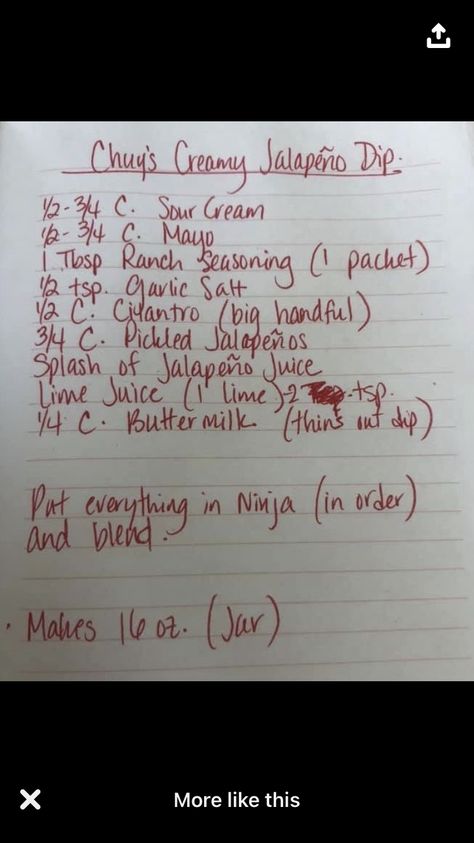 Chuy's Creamy Jalapeño Dip.
1/2 - 3/4 C. Sour Cream
1/2 - 3/4 C. Mayo
1 Tbsp Ranch Seasoning (1 packet)
1/2 tsp. Garlic Salt
1/2 C. Cilantro (big handful)
3/4 C. Pickled Jalapeños
Splash of Jalapeño Juice
Lime Juice (1 lime) -2 tsp.
1/4 C. Buttermilk (thins out dip)
Put everything in Ninja (in order)
and blend.
· Makes 16 oz. (Jar)
More like this